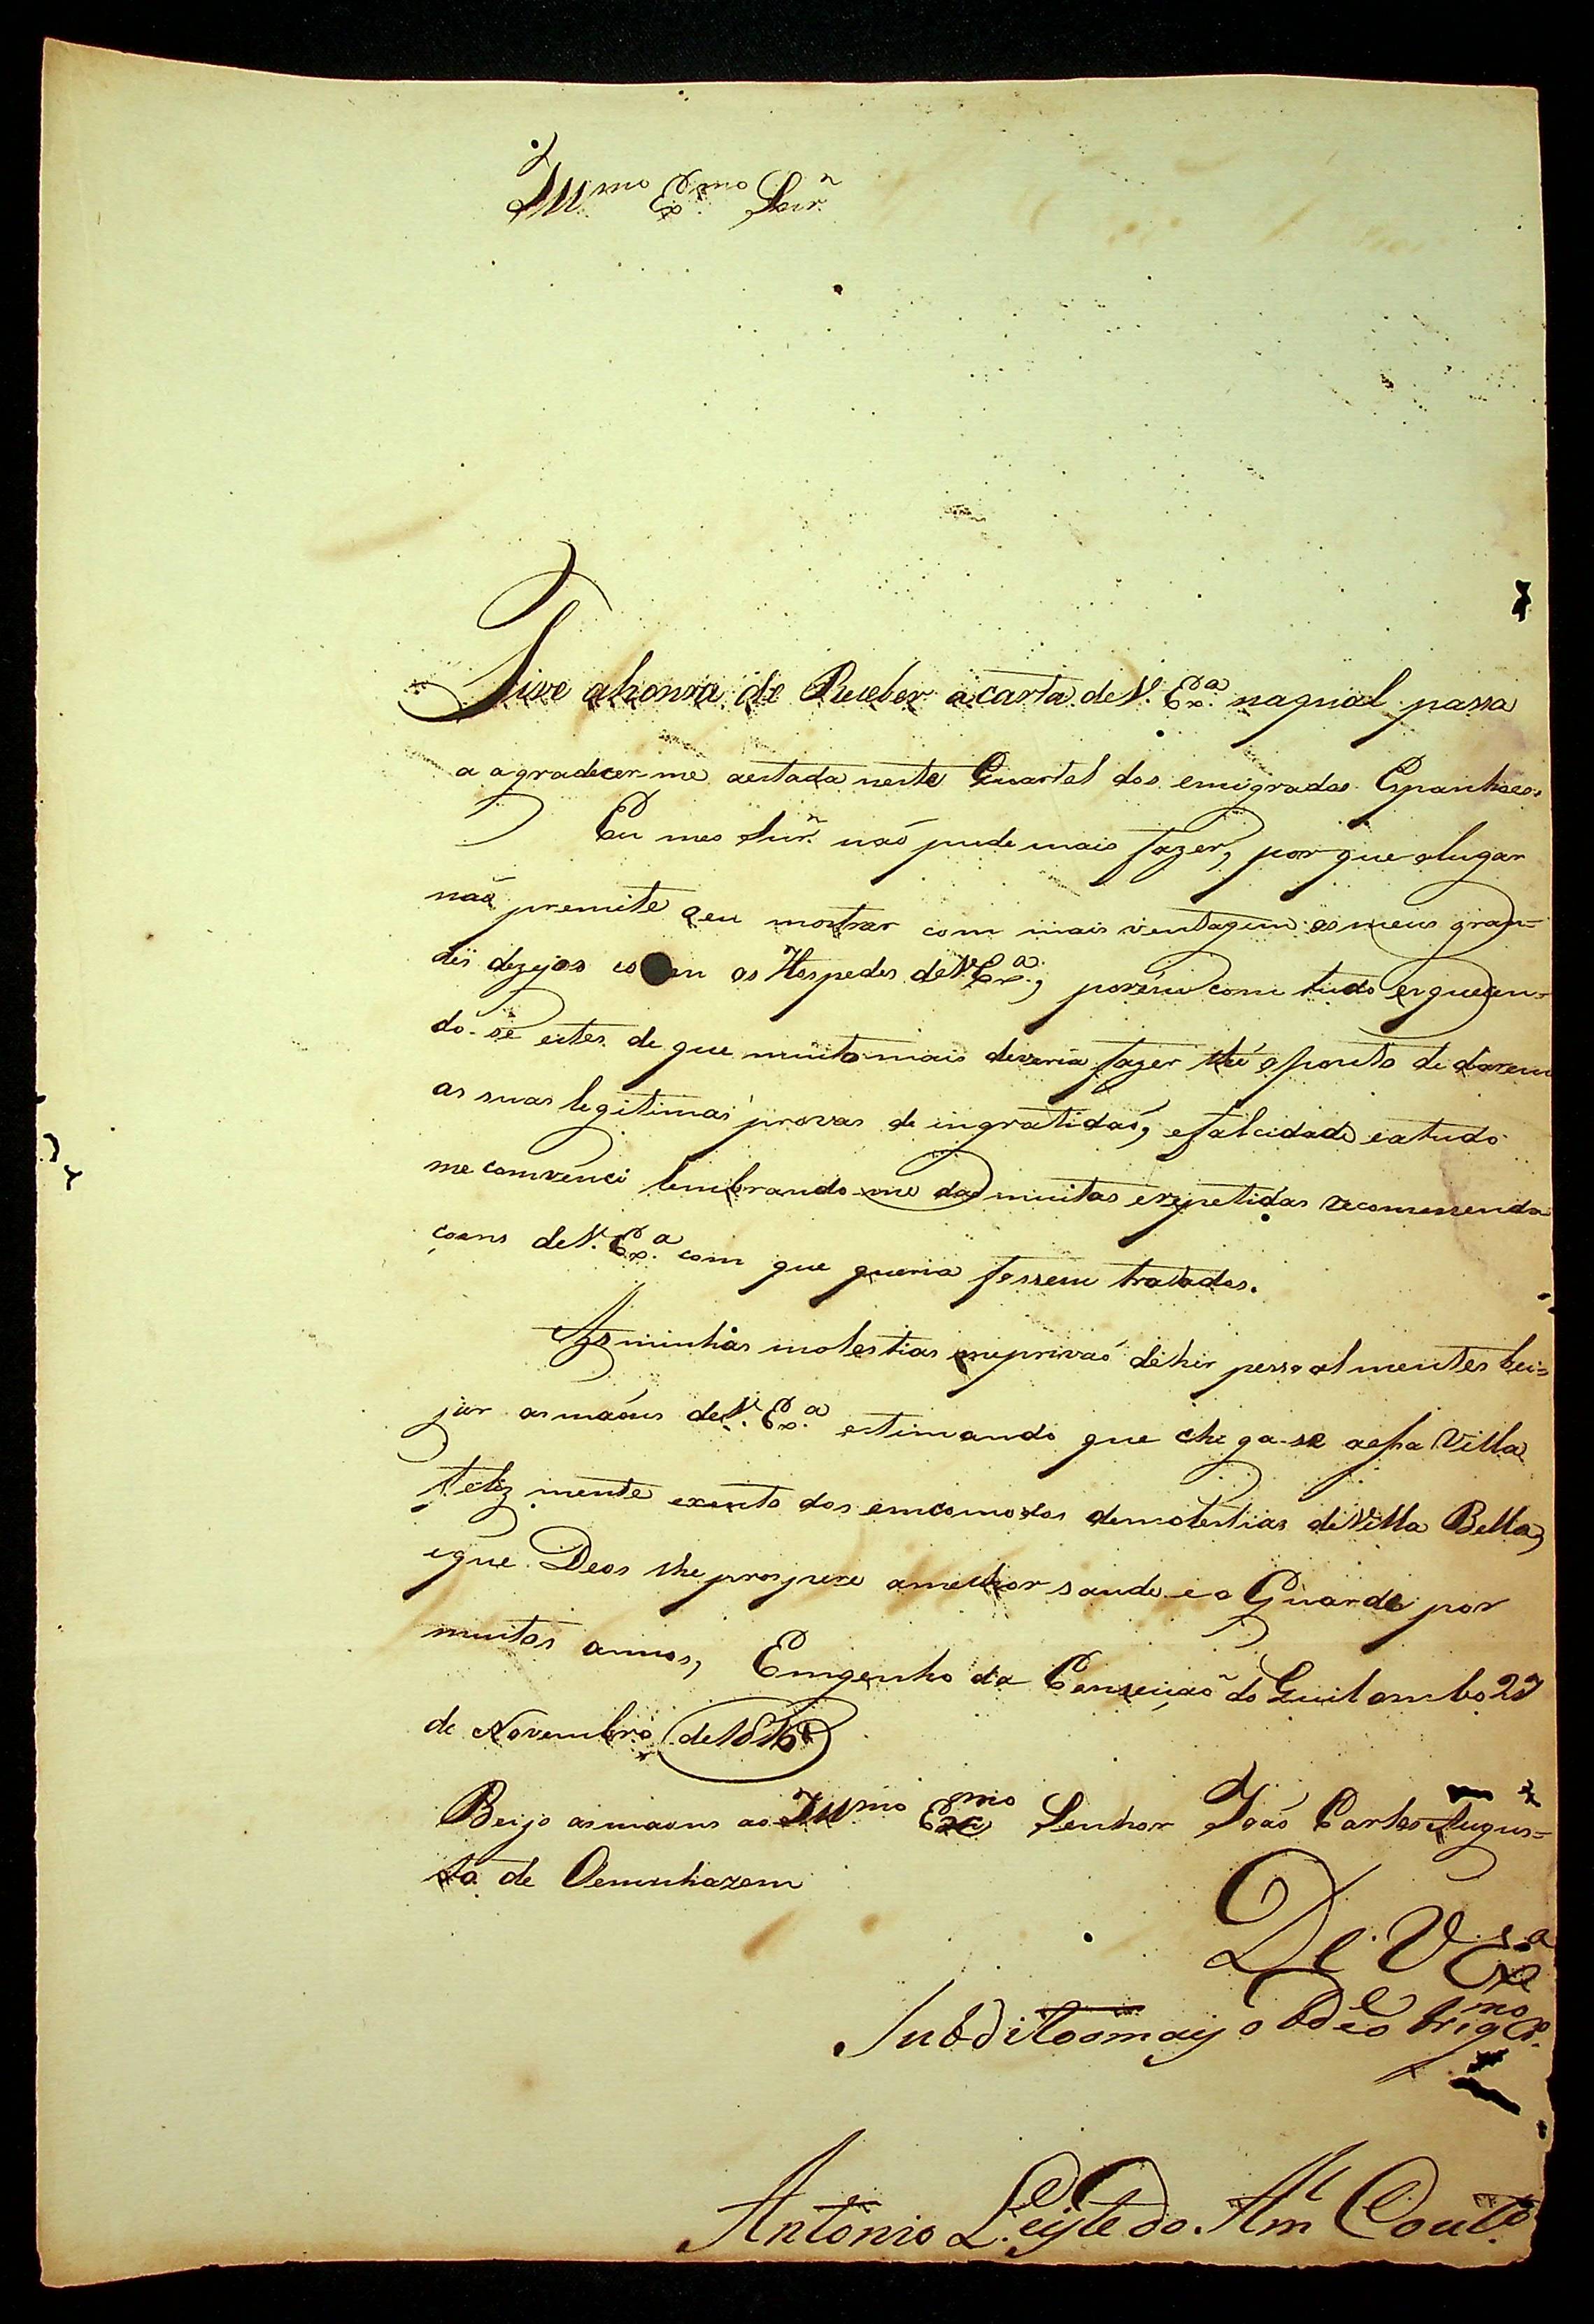 Ill.mo Ex.mo Snr.
Tive ahonra de Receber a carta de V. Ex.a naqual passa
a agradecer-me aestada neste Quartel dos emigrados Espanhoes.
Eu meo Snr. naõ pude mais fazer, por que olugar
naõ premite aeu mostrar com mais ventagem os meus gran=
des dezejos com os Hospedes de V. Ex.a, porém com tudo esquecen=
do-se estes de que muito mais deveria fazer thé oponto de darem
as suas legitimas provas de ingratidaõ, efalcidade eatudo
me comvenci lembrando-me das muitas erepetidas recomenda
çoens de V. Ex.a com que queria fossem tratados.
As minhas molestias meprivaõ dehir pessoalmentes bei=
jar asmaõns de V. Ex.a estimando que chega-se aessa Villa
feliz mente exento dos emcomodos demolestias de Villa Bella,
eque Deos lhe prospere amelhor saude e o Guarde por
muitos annos, Emgenho da Conseiçaõ do Quilombo 29
de Novembro de 1816
Beijo asmaons ao Ill.mo Ex.mo Senhor Joaõ Carlos Augus=
to de Oeinnhazem
De V. Ex.a
Subdito omais obd.e eo brig.mo Cr.
Antonio Leyte do Am.l Cout.o